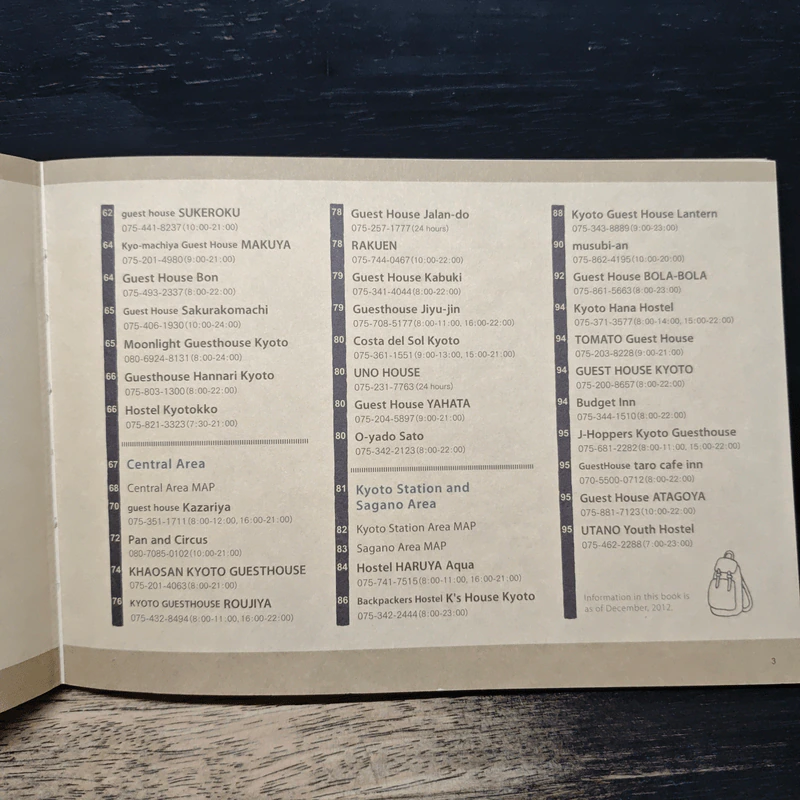 62 guest house SUKEROKU
075-441-8237(10:00-21:00)
64 Kyo-machiya Guest House MAKUYA
075-201-4980(9:00-21:00)
64 Guest House Bon
075-493-2337(8:00-22:00)
65 Guest House Sakurakomachi
075-406-1930(10:00-24:00)
65 Moonlight Guesthouse Kyoto
080-6924-8131(8:00-24:00)
66 Guesthouse Hannari Kyoto
075-803-1300(8:00-22:00)
66 Hostel Kyotokko
075-821-3323(7:30-21:00)
67 Central Area
68 Central Area MAP
70 guest house Kazariya
075-351-1711(8:00-12:00, 16:00-21:00)
72 Pan and Circus
080-7085-0102(10:00-21:00)
74 KHAOSAN KYOTO GUESTHOUSE
075-201-4063(8:00-21:00)
76 KYOTO GUESTHOUSE ROUJIYA
075-432-8494(8:00-11:00, 16:00-22:00)
78 Guest House Jalan-do
075-257-1777(24 hours)
78 RAKUEN
075-744-0467(10:00-22:00)
79 Guest House Kabuki
075-341-4044(8:00-22:00)
79 Guesthouse Jiyu-jin
075-708-5177(8:00-11:00, 16:00-22:00)
80 Costa del Sol Kyoto
075-361-1551(9:00-13:00, 15:00-21:00)
80 UNO HOUSE
075-231-7763(24 hours)
80 Guest House YAHATA
075-204-5897(9:00-21:00)
80 O-yado Sato
075-342-2123(8:00-22:00)
81 Kyoto Station and
Sagano Area
82 Kyoto Station Area MAP
83 Sagano Area MAP
84 Hostel HARUYA Aqua
075-741-7515(8:00-11:00, 16:00-21:00)
86 Backpackers Hostel K's House Kyoto
075-342-2444(8:00-23:00)
88 Kyoto Guest House Lantern
075-343-8889(9:00-23:00)
90 musubi-an
075-862-4195(10:00-20:00)
92 Guest House BOLA-BOLA
075-861-5663(8:00-23:00)
94 Kyoto Hana Hostel
075-371-3577(8:00-14:00, 15:00-22:00)
94 TOMATO Guest House
075-203-8228(9:00-21:00)
94 GUEST HOUSE KYOTO
075-200-8657(8:00-22:00)
94 Budget Inn
075-344-1510(8:00-22:00)
95 J-Hoppers Kyoto Guesthouse
075-681-2282(8:00-11:00, 15:00-22:00)
95 GuestHouse taro cafe inn
070-5500-0712(8:00-22:00)
95 Guest House ATAGOYA
075-881-7123(10:00-22:00)
95 UTANO Youth Hostel
075-462-2288(7:00-23:00)
Information in this book is
as of December, 2012.
3